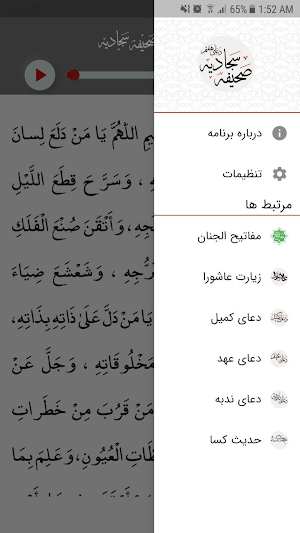 1:52 AM
81%
صحیفه سجادیه
دعای هفتم
سجادیه
صحیفه
درباره برنامه
تنظیمات
مرتبط ها
مفاتیح الجنان
زیارت عاشورا
دعای کمیل
دعای عهد
دعای ندبه
حدیث کسا
يمِ اَللّهُمَّ يا مَنْ دَلَعَ لِسانَ
هِ ، وَسَرَّحَ قِطَعَ اللَّيْلِ
جِهِ، وَاَتْقَنَ صُنْعَ الْفَلَكِ
رُّجِهِ ، وَشَعْشَعَ ضِياءَ
يا مَنْ دَلَّ عَلى ذاتِهِ بِذاتِهِ،
مَخْلُوقاتِهِ ، وَجَلَّ عَنْ
مَنْ قَرُبَ مِنْ خَطَراتِ
ظاتِ الْعُيُونِ، وَعَلِمَ بِما